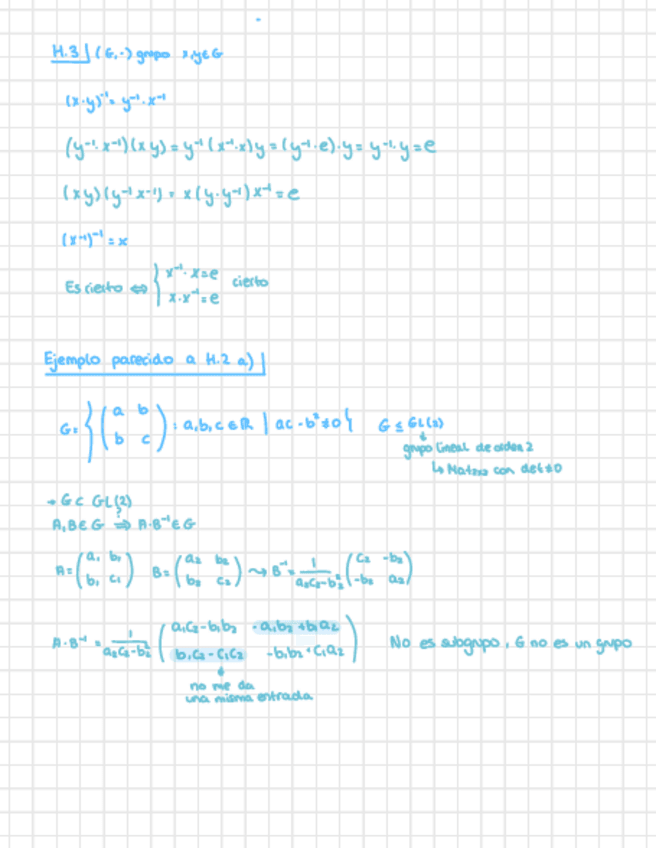 H.3 | (G,·) grupo x,y∈G
(x·y)⁻¹ = y⁻¹·x⁻¹
(y⁻¹·x⁻¹)(xy) = y⁻¹(x⁻¹·x)y = (y⁻¹·e)·y = y⁻¹·y = e
(xy)(y⁻¹x⁻¹) = x(y·y⁻¹)x⁻¹ = e
(x⁻¹)⁻¹ = x
Es cierto ⇔ { x⁻¹·x = e
x·x⁻¹ = e cierto
Ejemplo parecido a H.2 a) |
G = { ( a b
b c ) : a,b,c ∈ ℝ | ac - b² ≠ 0 } G ≤ GL(2)
grupo lineal de orden 2
↳ Matriz con det ≠ 0
→ G ⊂ GL(2)
A,B ∈ G ⇒? A·B⁻¹ ∈ G
A = ( a₁ b₁
b₁ c₁ ) B = ( a₂ b₂
b₂ c₂ ) ⤳ B⁻¹ = 1/(a₂c₂-b₂²) · ( c₂ -b₂
-b₂ a₂ )
A·B⁻¹ = 1/(a₂c₂-b₂²) ( a₁c₂-b₁b₂ -a₁b₂+b₁a₂
b₁c₂-c₁c₂ -b₁b₂+c₁a₂ ) No es subgrupo, G no es un grupo
↓
no me da
una misma entrada